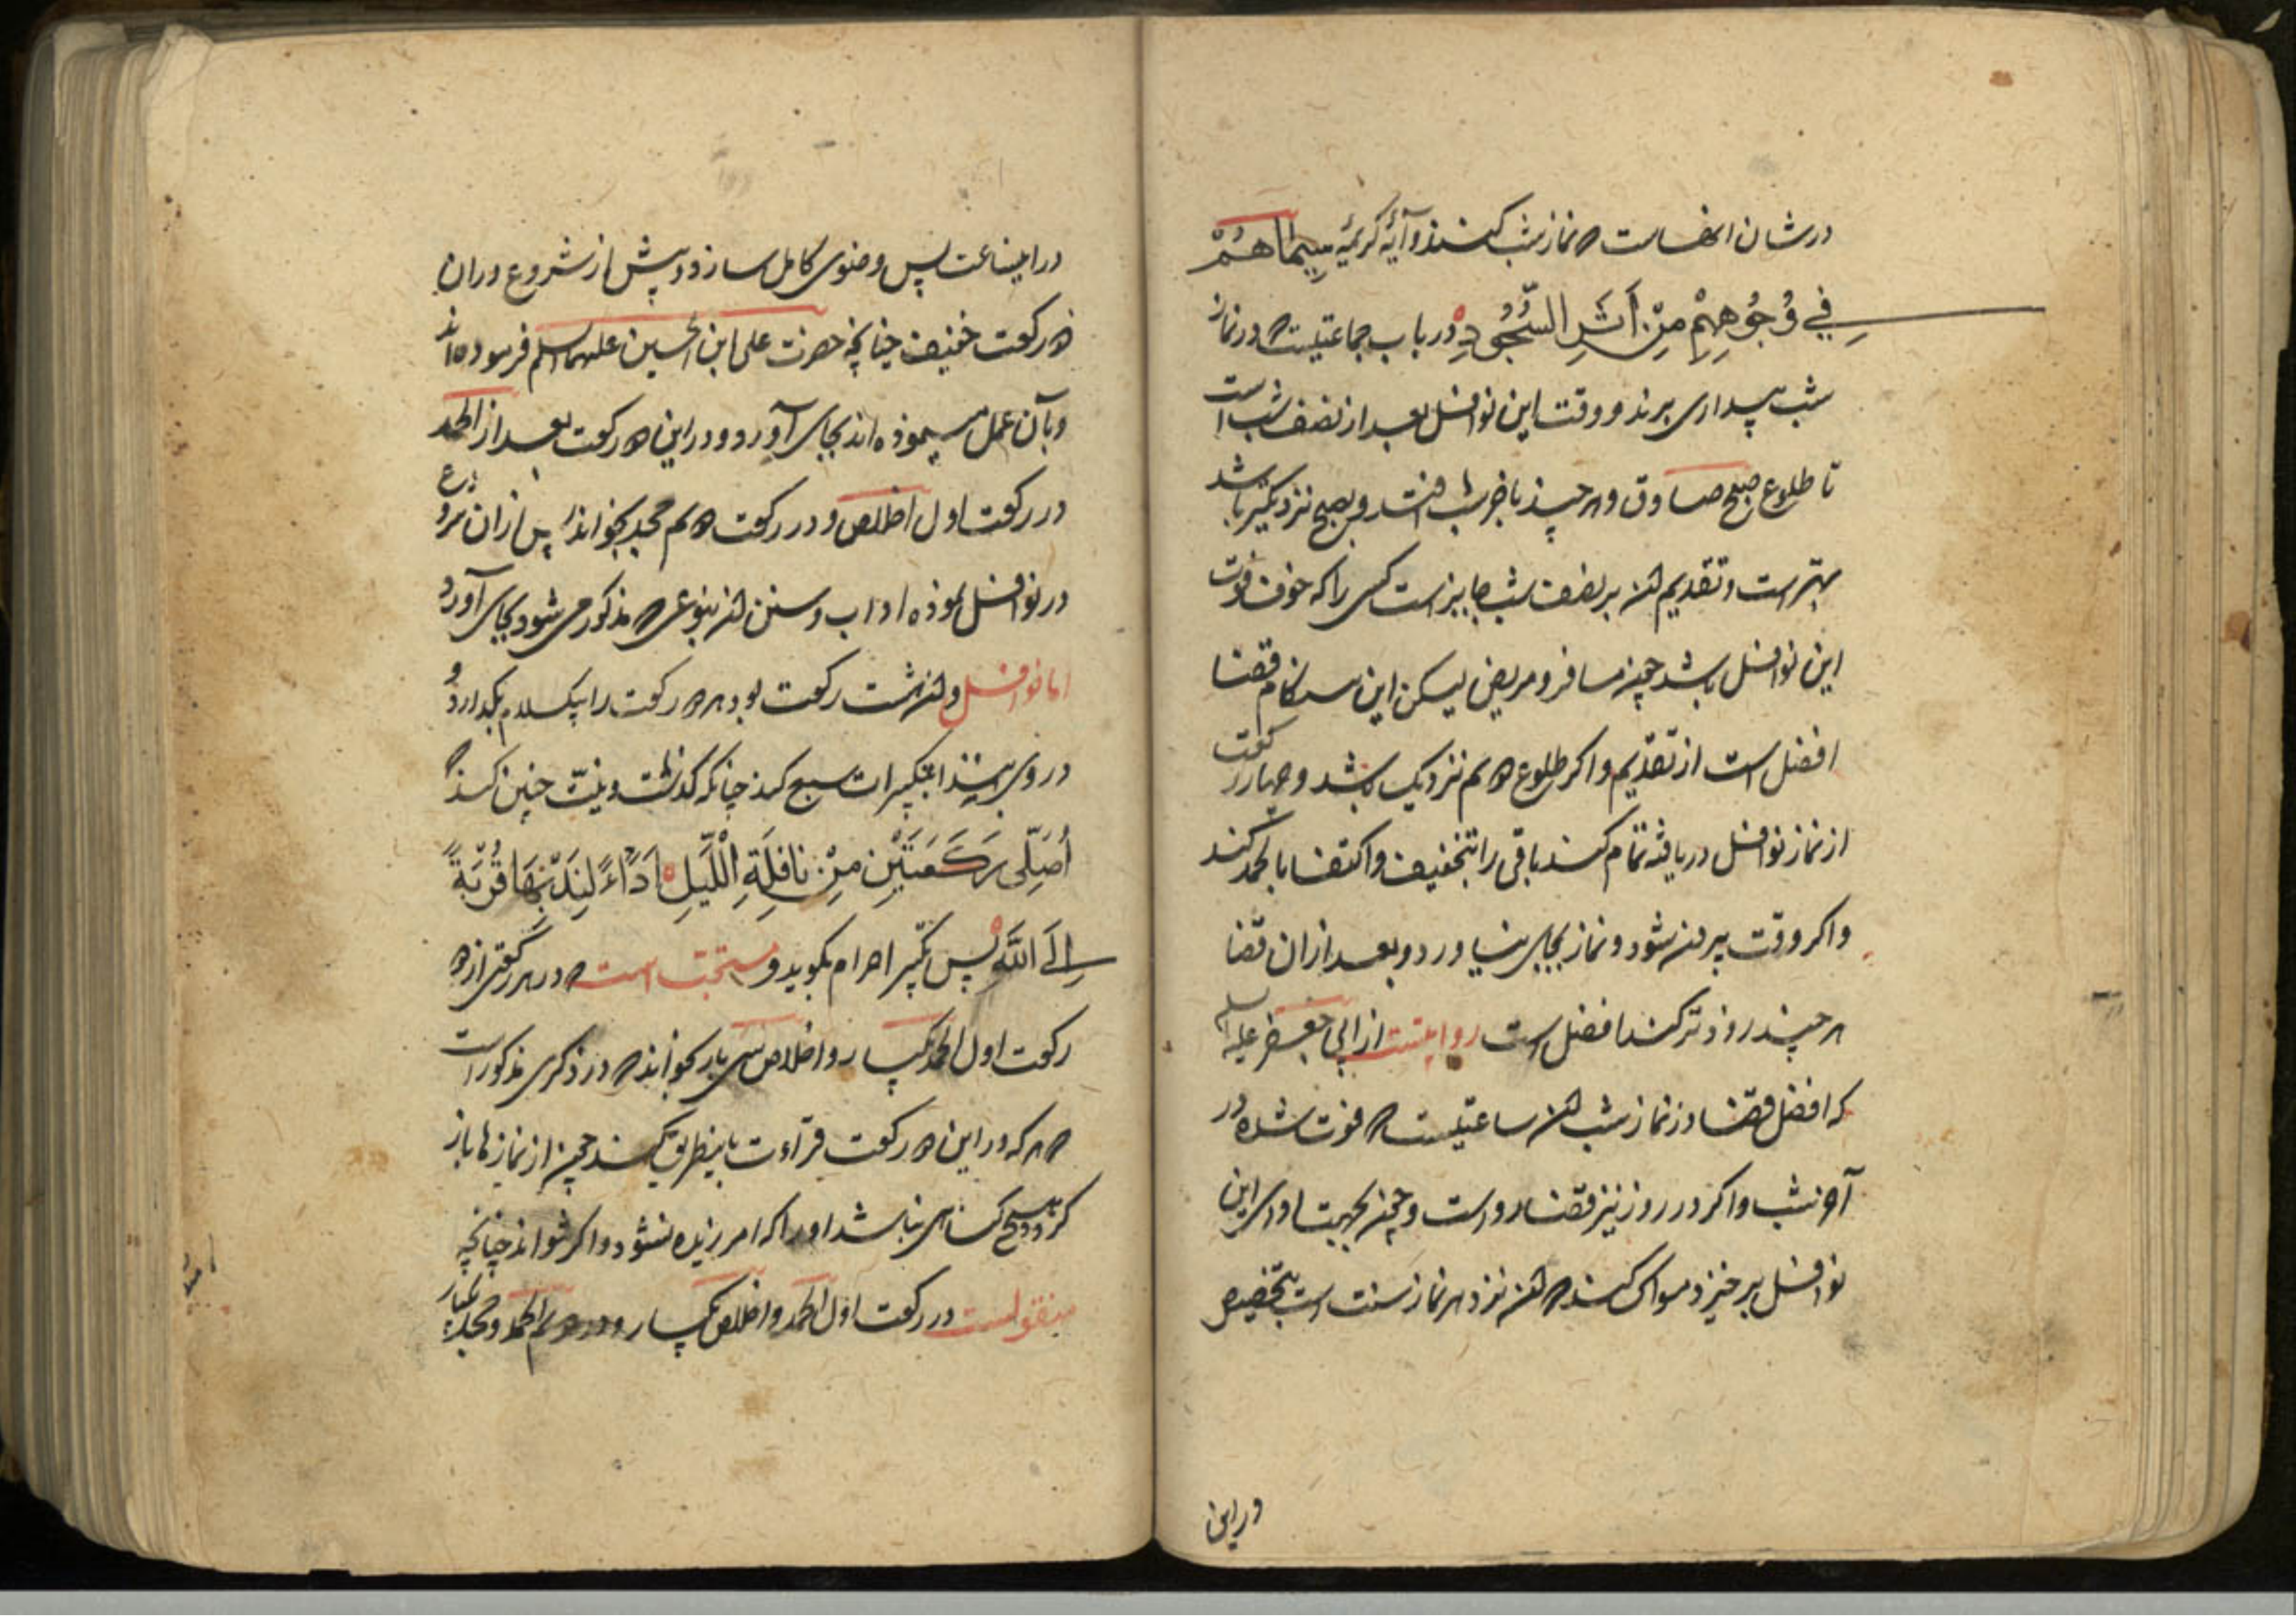 در شان آنهاست که نماز شب کنند و آیه کریمه سِیمَاهُمْ
فِي وُجُوهِهِمْ مِنْ أَثَرِ السُّجُودِ در باب جماعتیست که در نماز
شب بیداری برند و وقت این نوافل بعد از نصف شب است
تا طلوع صبح صادق و هر چند بآخر شب افتد و بصبح نزدیکتر باشد
بهتر است و تقدیم آن بر نصف شب جایز است کسی را که خوف فوت
این نوافل باشد چون مسافر و مریض لیکن این هنگام قضا
افضل است از تقدیم و اگر طلوع دوم نزدیک باشد و چهار رکعت
از نماز نوافل دریافته تمام کند باقی را بتخفیف و اکتفا بالحمد کند
و اگر وقت بیرون شود و نماز بجای نیاورد و بعد از آن قضا
هر چند زودتر کند افضل است روایتست از ابی جعفر علیه السلم
که افضل قضا در نماز شب آن ساعتیست که فوت شده در
آخر شب و اگر در روز نیز قضا رواست و چون بجهت ادای این
نوافل برخیزد مسواک کند که آن نزد هر نماز سنت است بتخصیص
در این
در این ساعت پس وضوی کامل سازد و پیش از شروع در آن
دو رکعت خفیف چنانچه حضرت علی ابن الحسین علیهما السلم فرموده اند
و بآن عمل می نموده اند بجای آورد و در این دو رکعت بعد از الحمد
در رکعت اول اخلاص و در رکعت دوم جحد بخواند پس از آن شروع
در نوافل نموده آداب و سنن آن بنوعی که مذکور می شود بجای آورد
اما نوافل و آن هشت رکعت بود هر دو رکعت را بیک سلام بگذارد و
در وی ابتدا بتکبیرات سبع کند چنانکه گذشت و نیت چنین کند که
أُصَلِّي رَكْعَتَيْنِ مِنْ نَافِلَةِ اللَّيْلِ أَدَاءً لِنَدْبِهَا قُرْبَةً
إِلَى اللَّهِ پس تکبیر احرام بگوید و مستحب است که در هر رکعتی از دو
رکعت اول الحمد یکبار و اخلاص سی بار بخواند که در ذکری مذکور است
که هر که در این دو رکعت قرائت باینطریق کند چون از نمازها باز
گردد هیچ گناهی نباشد او را که آمرزیده نشود و اگر نتواند چنانچه
منقولست در رکعت اول الحمد و اخلاص یکبار و در دوم الحمد و جحد یکبار